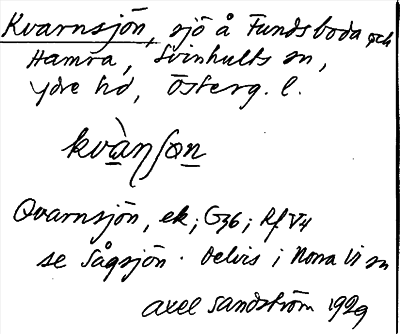 Kvarnsjön, sjö å Fundsboda och
Hamra, Svinhults sn,
Ydre hd, Österg. l.
kvànʃon
Qvarnsjön, ek; G36; Rf V4
se Sågsjön. Delvis i Norra Vi sn
Axel Sandström 1929